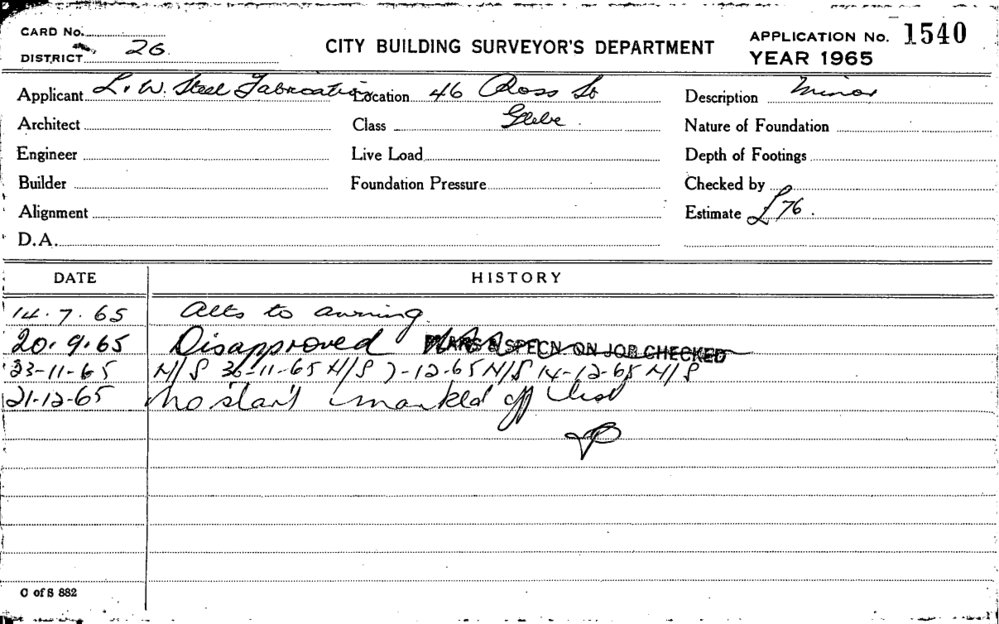 CARD No.
DISTRICT 26
CITY BUILDING SURVEYOR'S DEPARTMENT
APPLICATION No. 1540
YEAR 1965
Applicant L. W. Steel Fabrication Location 46 Ross St Description Minor
Architect Class Glebe. Nature of Foundation
Engineer Live Load Depth of Footings
Builder Foundation Pressure Checked by
Alignment Estimate £76.
D.A.
DATE HISTORY
14.7.65 Alts to awning
20.9.65 Disapproved PLANS & SPECN ON JOB CHECKED
23-11-65 N/S 30-11-65 N/S 7-12-65 N/S 14-12-65 N/S
21-12-65 No start marked off list
C of S 882